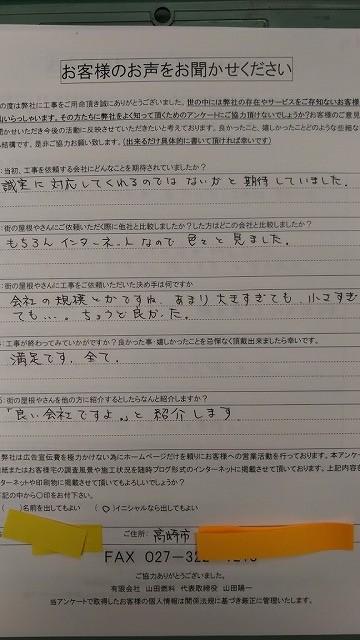 お客様のお声をお聞かせください
の度は弊社に工事をご用命頂き誠にありがとうございました。世の中には弊社の存在やサービスをご存知ないお客様
いらっしゃいます。その方たちに弊社をよく知って頂くためのアンケートにご協力頂けないでしょうか?お客様のご意見
聞かせいただき今後の活動に反映させていただきたいと考えております。良かったこと、嬉しかったことどのような些細な
結構です。是非ご協力お願い致します。(出来るだけ具体的に書いて頂ければ幸いです)
:当初、工事を依頼する会社にどんなことを期待されていましたか?
誠実に対応してくれるのではないかと期待していました。
街の屋根やさんにご依頼いただく際に他社と比較しましたか?した方はどこの会社と比較しましたか?
もちろんインターネットなので色々と見ました。
:街の屋根やさんに工事をご依頼いただいた決め手は何ですか
会社の規模とかですね、あまり大きすぎても、小さすぎ
ても…。ちょうど良かった。
:工事が終わってみていかがですか?良かった事・嬉しかったことを忌憚なく頂戴出来ましたら幸いです。
満足です、全て。
:街の屋根やさんを他の方に紹介するとしたらなんと紹介しますか?
「良い会社ですよ。」と紹介します
弊社は広告宣伝費を極力かけない為にホームページだけを頼りにお客様への営業活動を行っております。本アンケ
用紙またはお客様宅の調査風景や施工状況を随時ブログ形式のインターネットに掲載させて頂いております。上記内容を
ターネットや印刷物に掲載させて頂いてもよろしいでしょうか?
記の中から〇印をお付け下さい。
( )名前を出してもよい (〇)イニシャルなら出してもよい
ご住所: 高崎市
FAX 027-32
ご協力ありがとうございました。
有限会社 山田燃料 代表取締役 山田陽一
当アンケートで取得したお客様の個人情報は関係法規に基づき厳正に管理いたします。